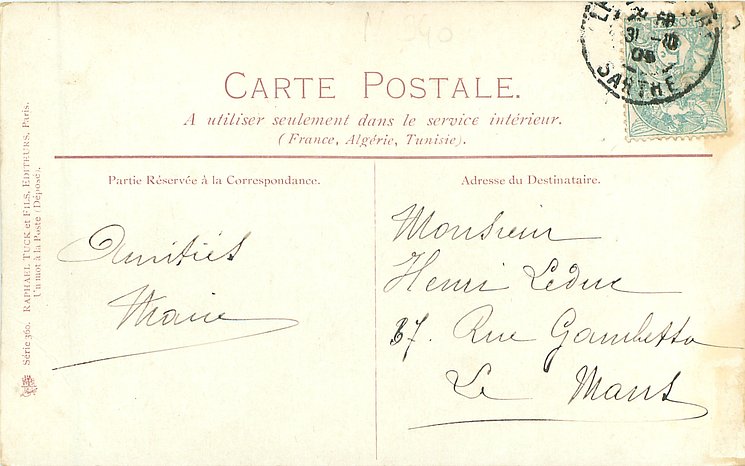 CARTE POSTALE.
A utiliser seulement dans le service intérieur.
(France, Algérie, Tunisie).
Partie Réservée à la Correspondance.
Amitiés
Marie
Adresse du Destinataire.
Monsieur
Henri Leduc
37. Rue Gambetta
Le Mans
Série 360. RAPHAEL TUCK et FILS, EDITEURS, Paris.
Un mot à la Poste (Déposé).
31 -10
05
SARTHE